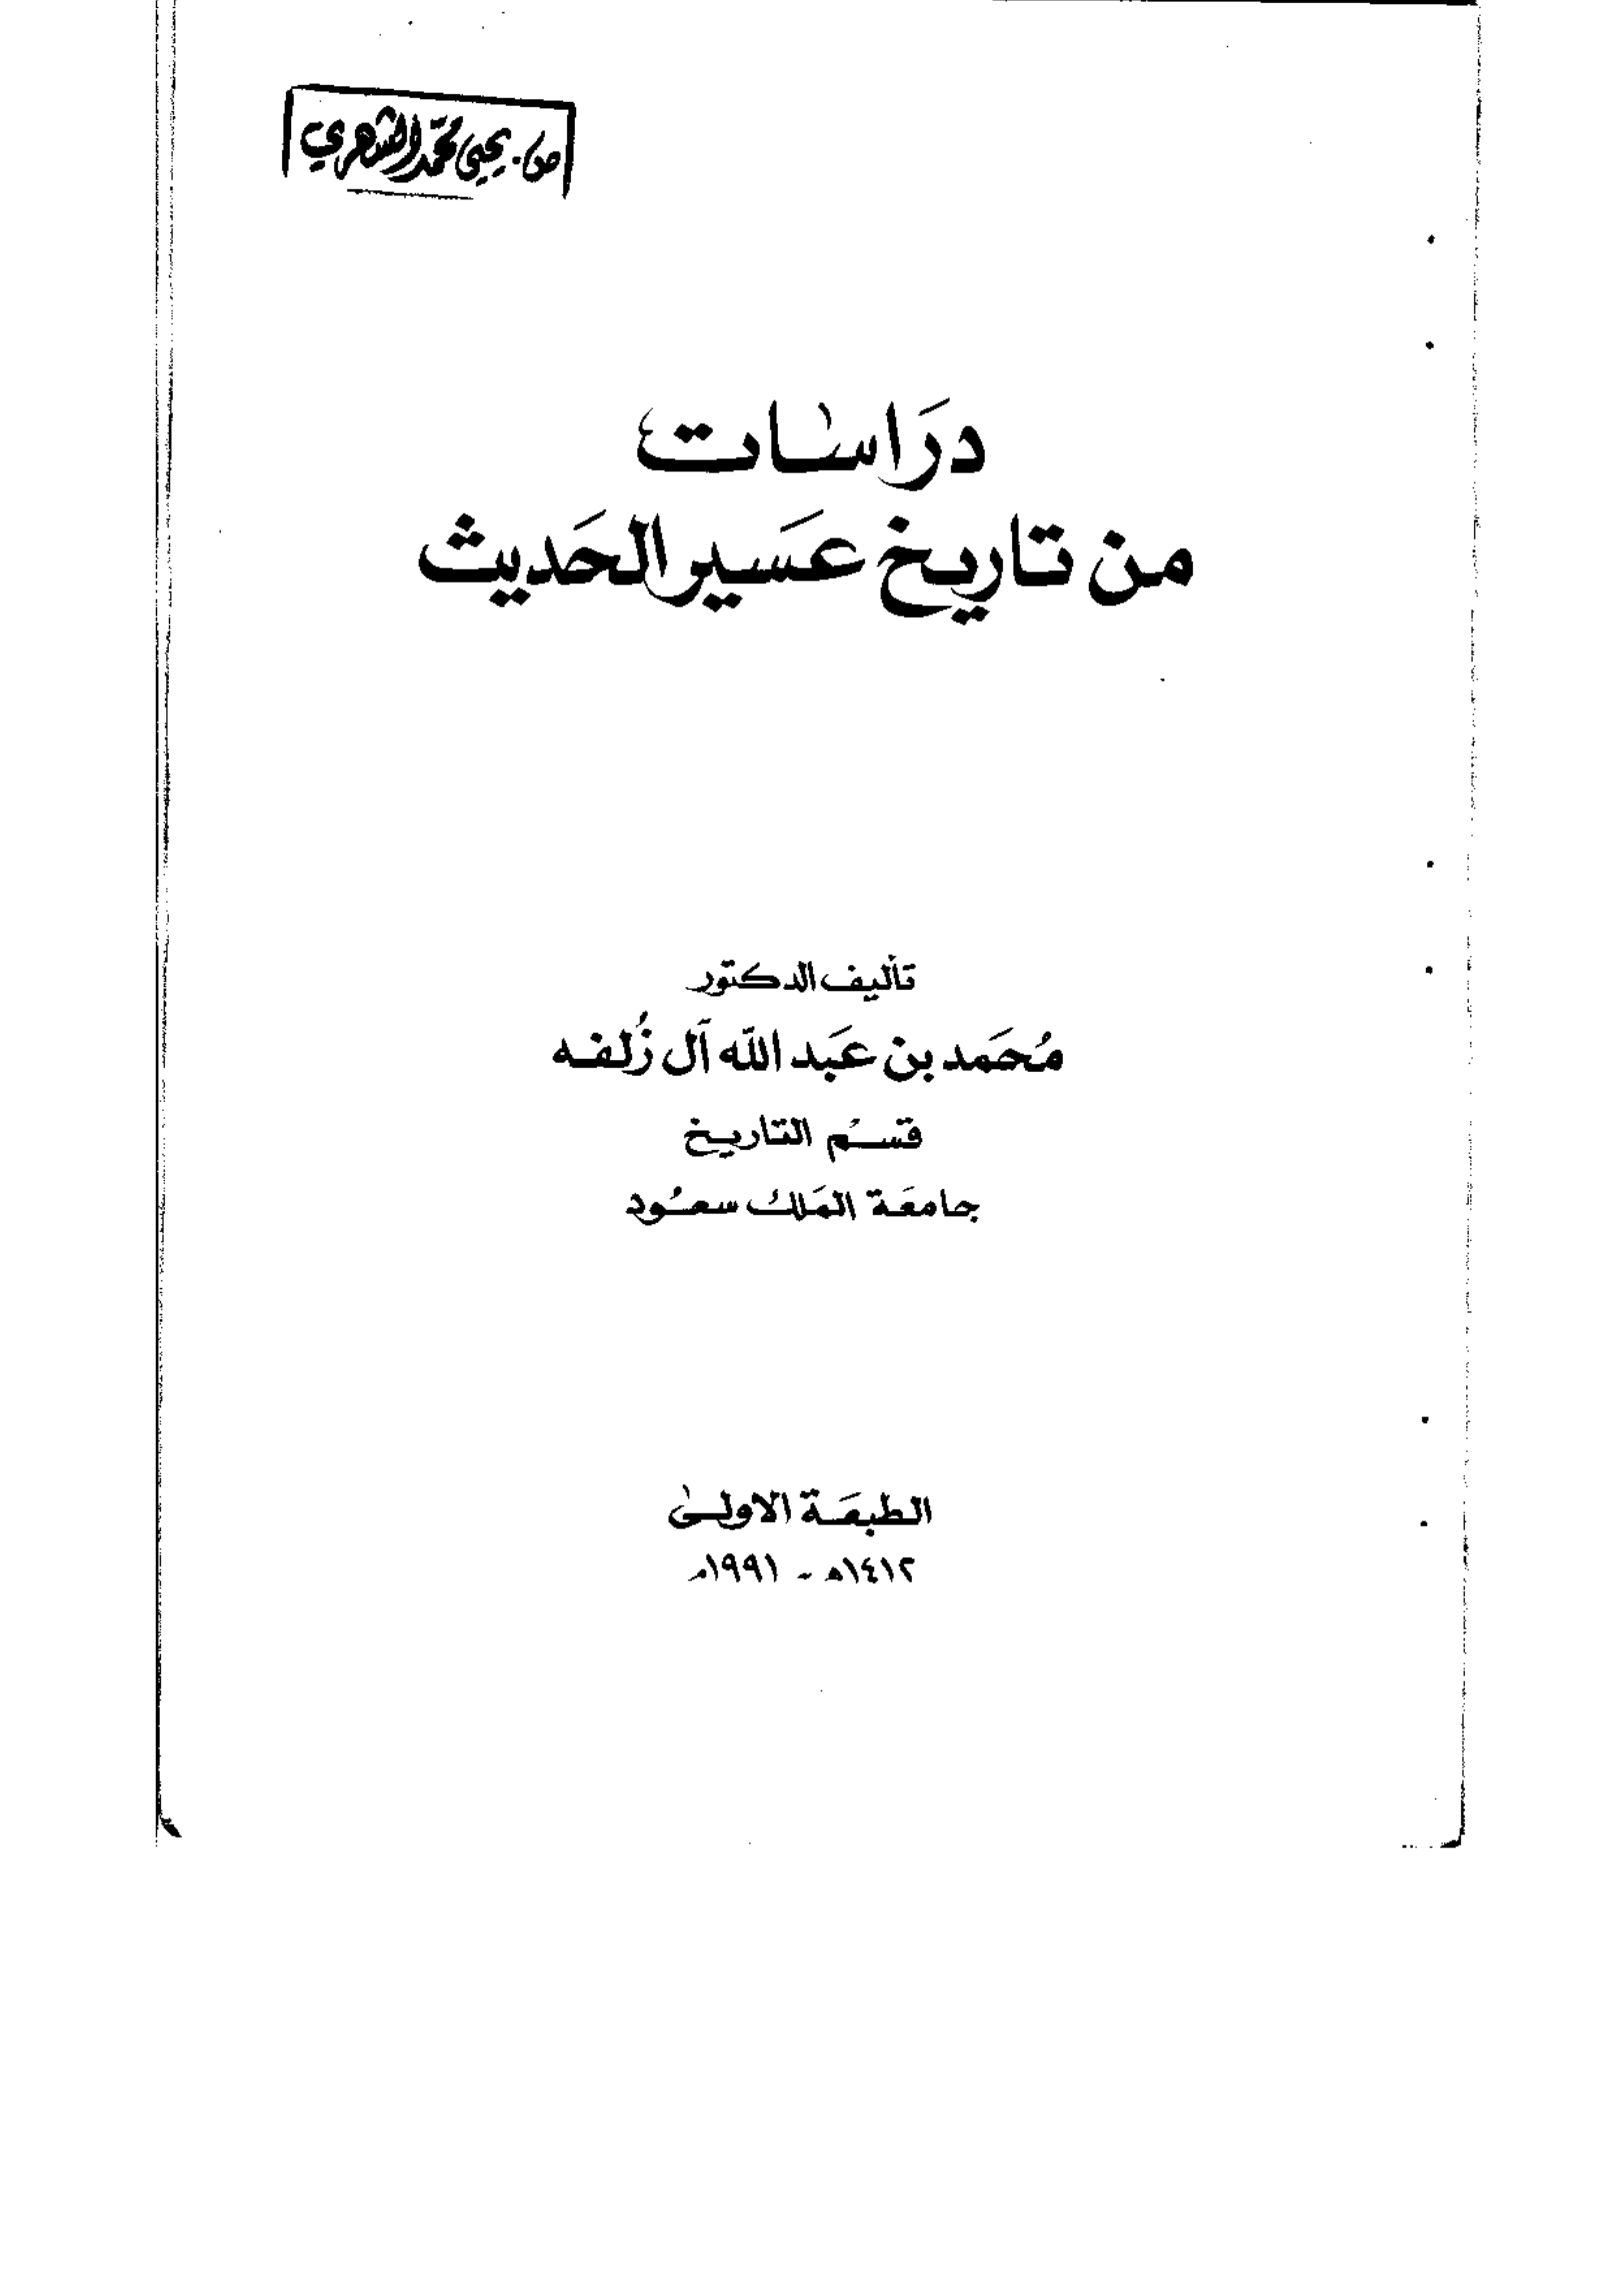 من. يحيى محمد الشهري
دَرَاسَات
من تاريخ عَسير الحَديث
تأليف الدكتور
مُحَمد بن عَبد الله آل زُلفه
قسم التاريخ
جامعَة المَلك سعُود
الطبعَة الاولى
١٤١٢هـ - ١٩٩١م